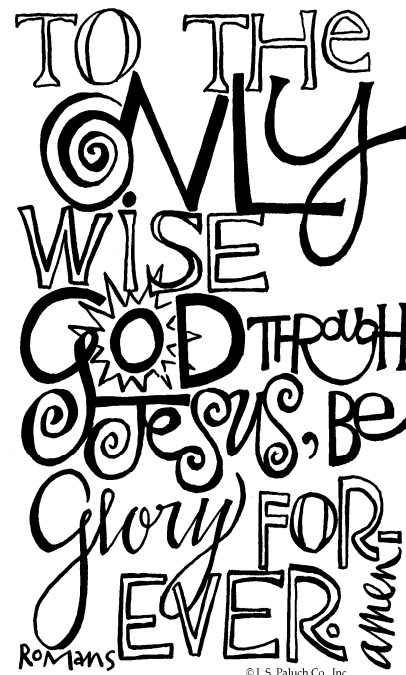 TO THE
ONLY
WISE
GOD THROUGH
JESUS, BE
Glory FOR-
EVER. amen.
Romans
© J. S. Paluch Co., Inc.